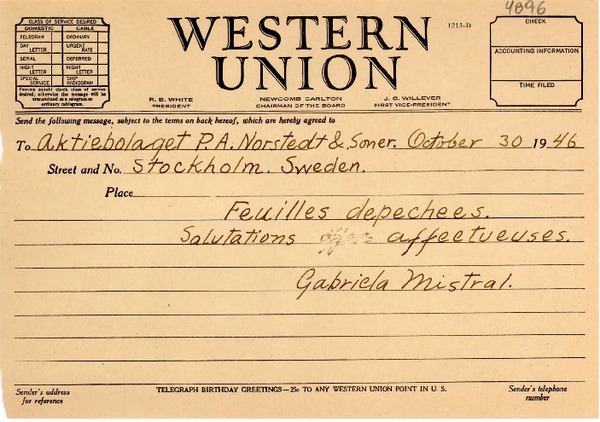 4896
CLASS OF SERVICE DESIRED
DOMESTIC CABLE
TELEGRAM ORDINARY
DAY LETTER URGENT RATE
SERIAL DEFERRED
NIGHT LETTER NIGHT LETTER
SPECIAL SERVICE SHIP RADIOGRAM
Patrons should check class of service desired; otherwise the message will be transmitted as a telegram or ordinary cablegram.
WESTERN UNION
1213-D
CHECK
ACCOUNTING INFORMATION
TIME FILED
R. B. WHITE
PRESIDENT
NEWCOMB CARLTON
CHAIRMAN OF THE BOARD
J. C. WILLEVER
FIRST VICE-PRESIDENT
Send the following message, subject to the terms on back hereof, which are hereby agreed to
To Aktiebolaget P.A. Norstedt & Soner. October 30 1946
Street and No. Stockholm. Sweden.
Place
Feuilles depechees.
Salutations affectueuses.
Gabriela Mistral.
Sender's address
for reference
TELEGRAPH BIRTHDAY GREETINGS—25c TO ANY WESTERN UNION POINT IN U. S.
Sender's telephone
number